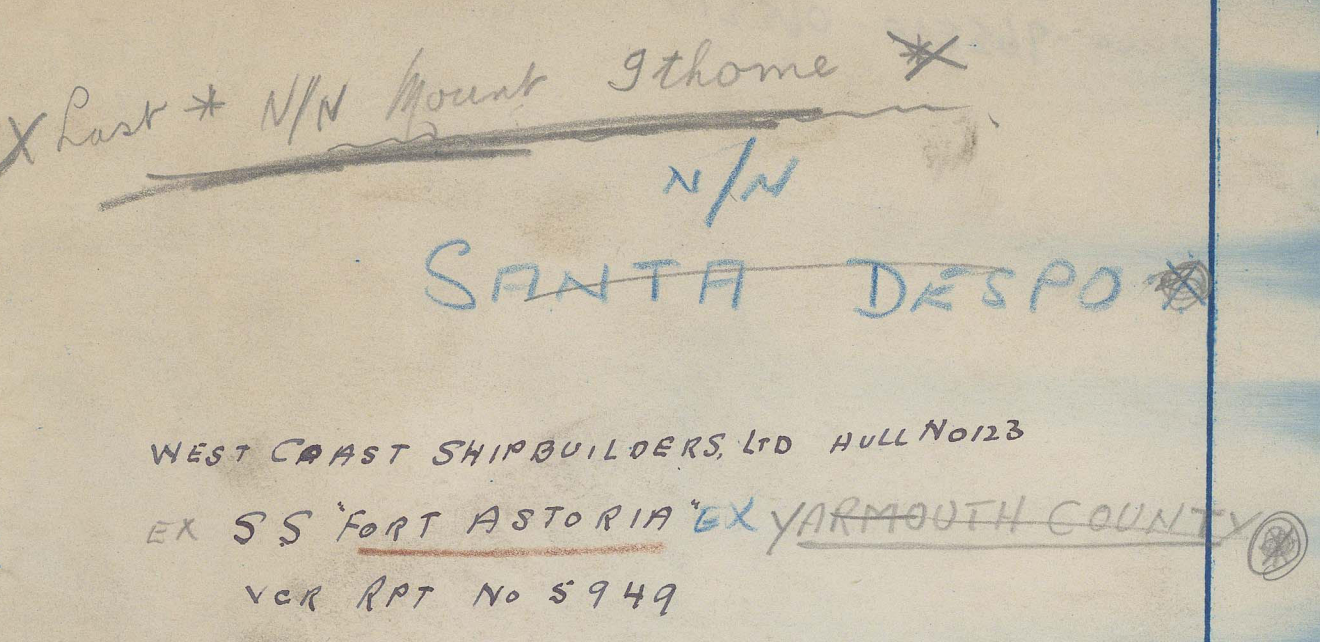 X Last * N/N Mount Ithome *
N/N
SANTA DESPO *
WEST COAST SHIPBUILDERS, LTD HULL No 123
EX SS "FORT ASTORIA" EX YARMOUTH COUNTY *
VCR RPT No 5949